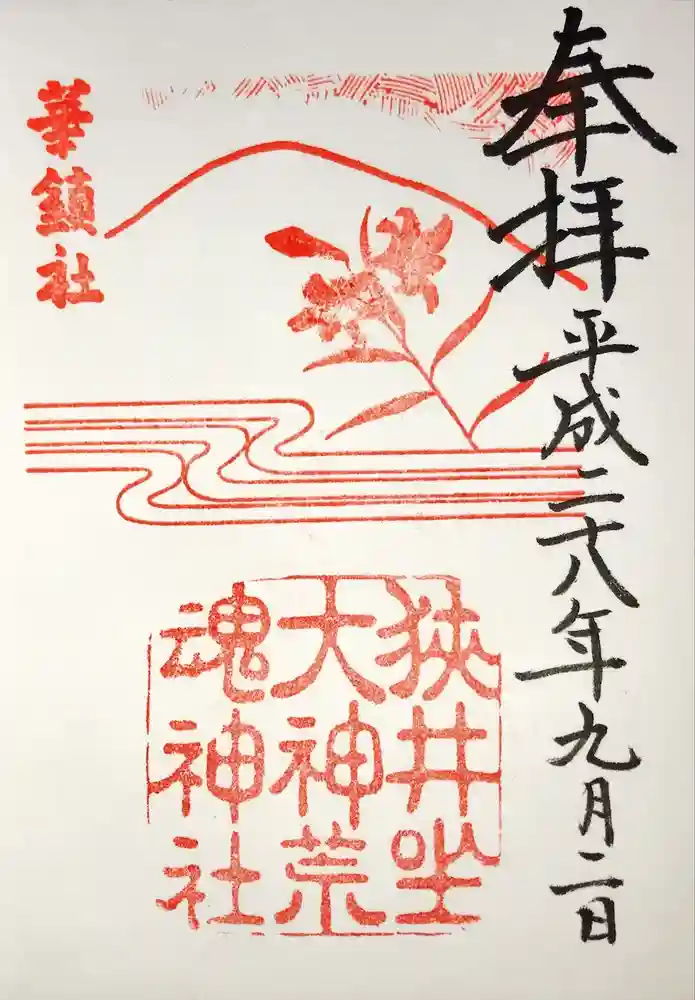 奉拝
平成二十八年九月二日
狭井坐
大神荒
魂神社
華鎮社